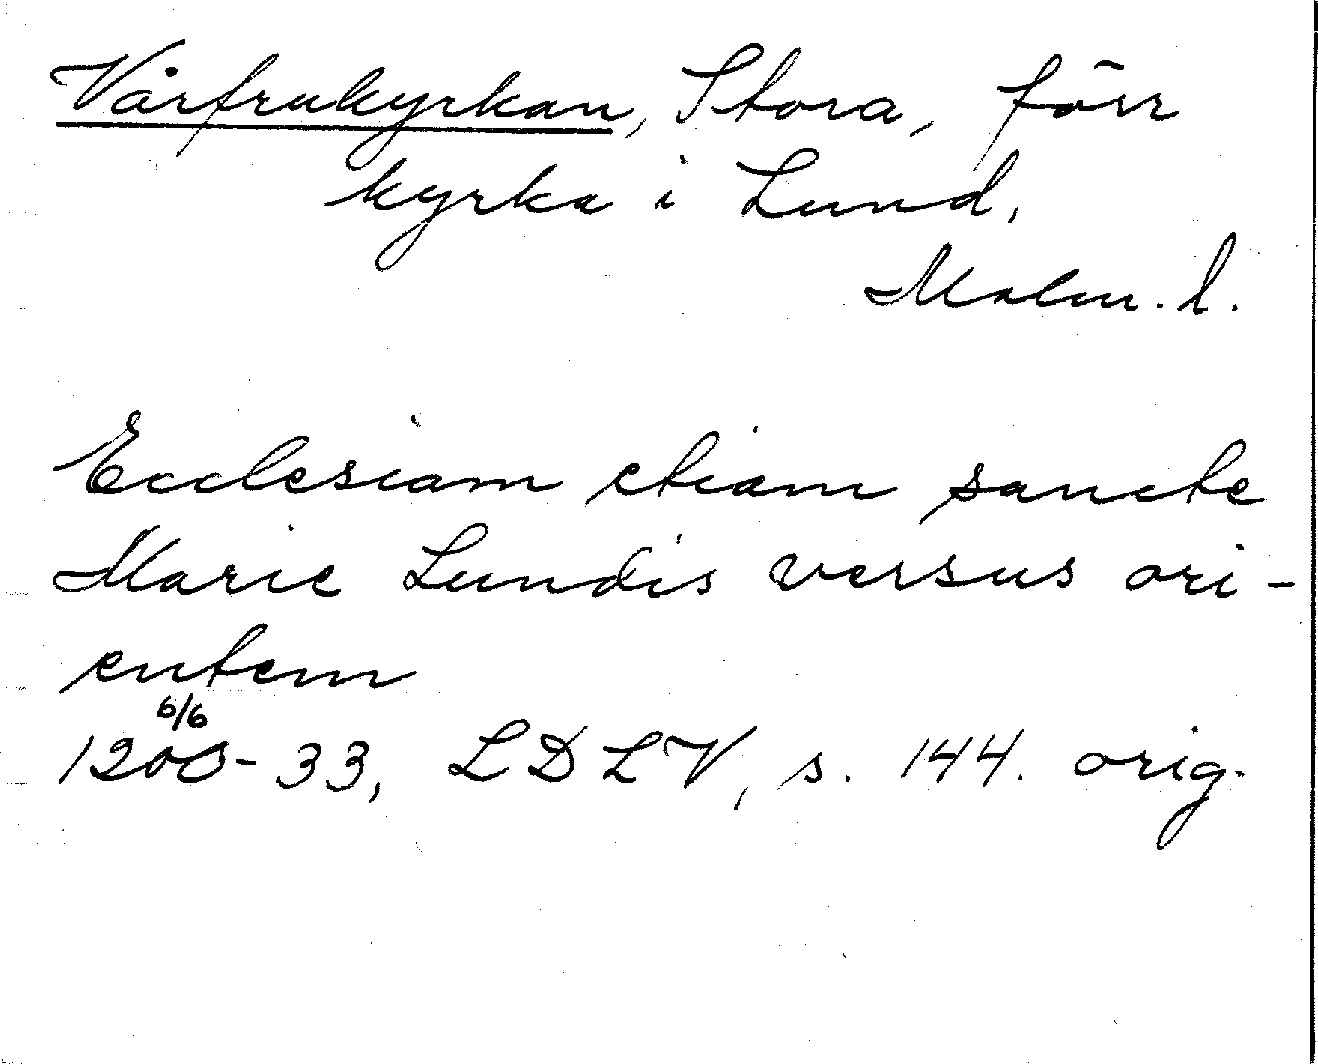 Vårfrukyrkan, Stora, förr
kyrka i Lund,
Malm. l.
Ecclesiam etiam sancte
Marie Lundis versus ori-
entem
6/6
1200-33, LDLV, s. 144. orig.